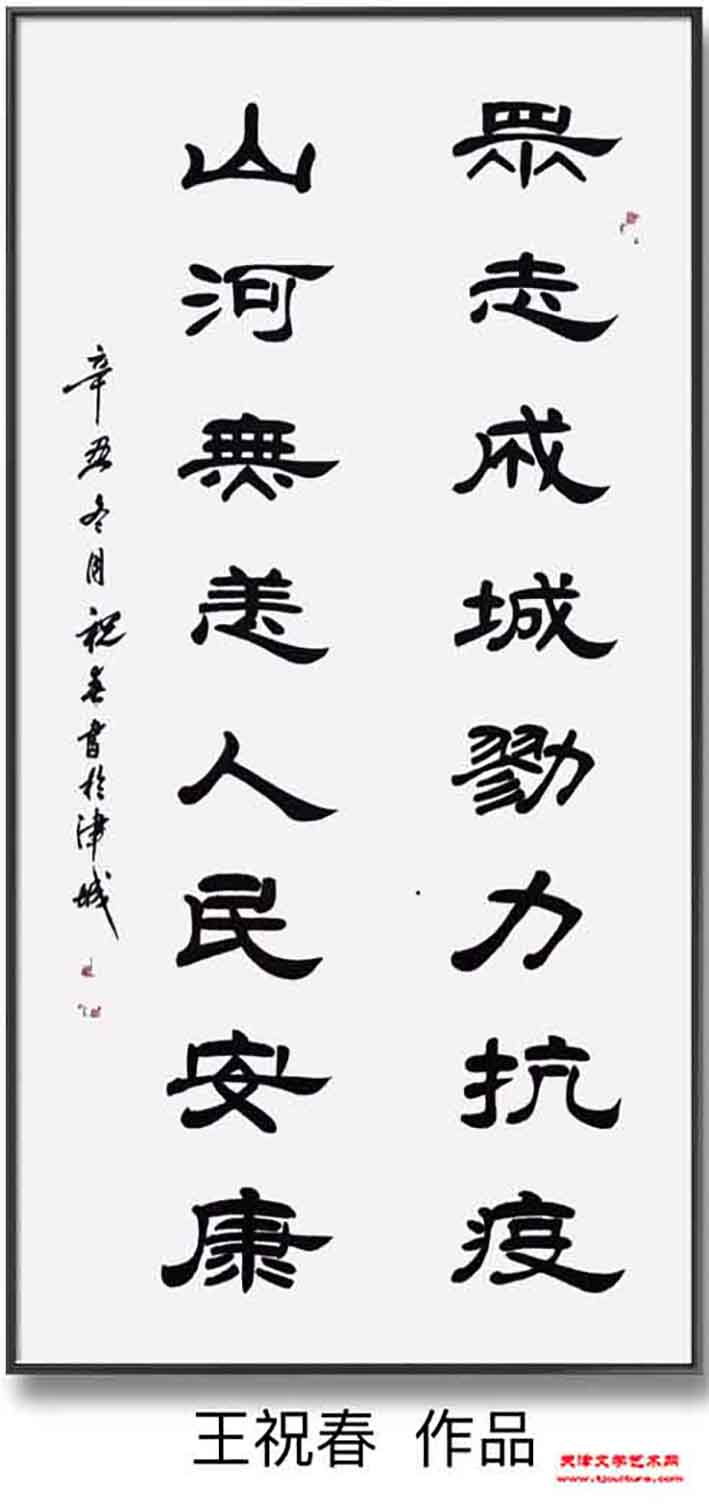 眾志成城勠力抗疫
山河無恙人民安康
辛丑冬月祝春書於津城
王祝春 作品
天津文学艺术网
www.tjculture.com